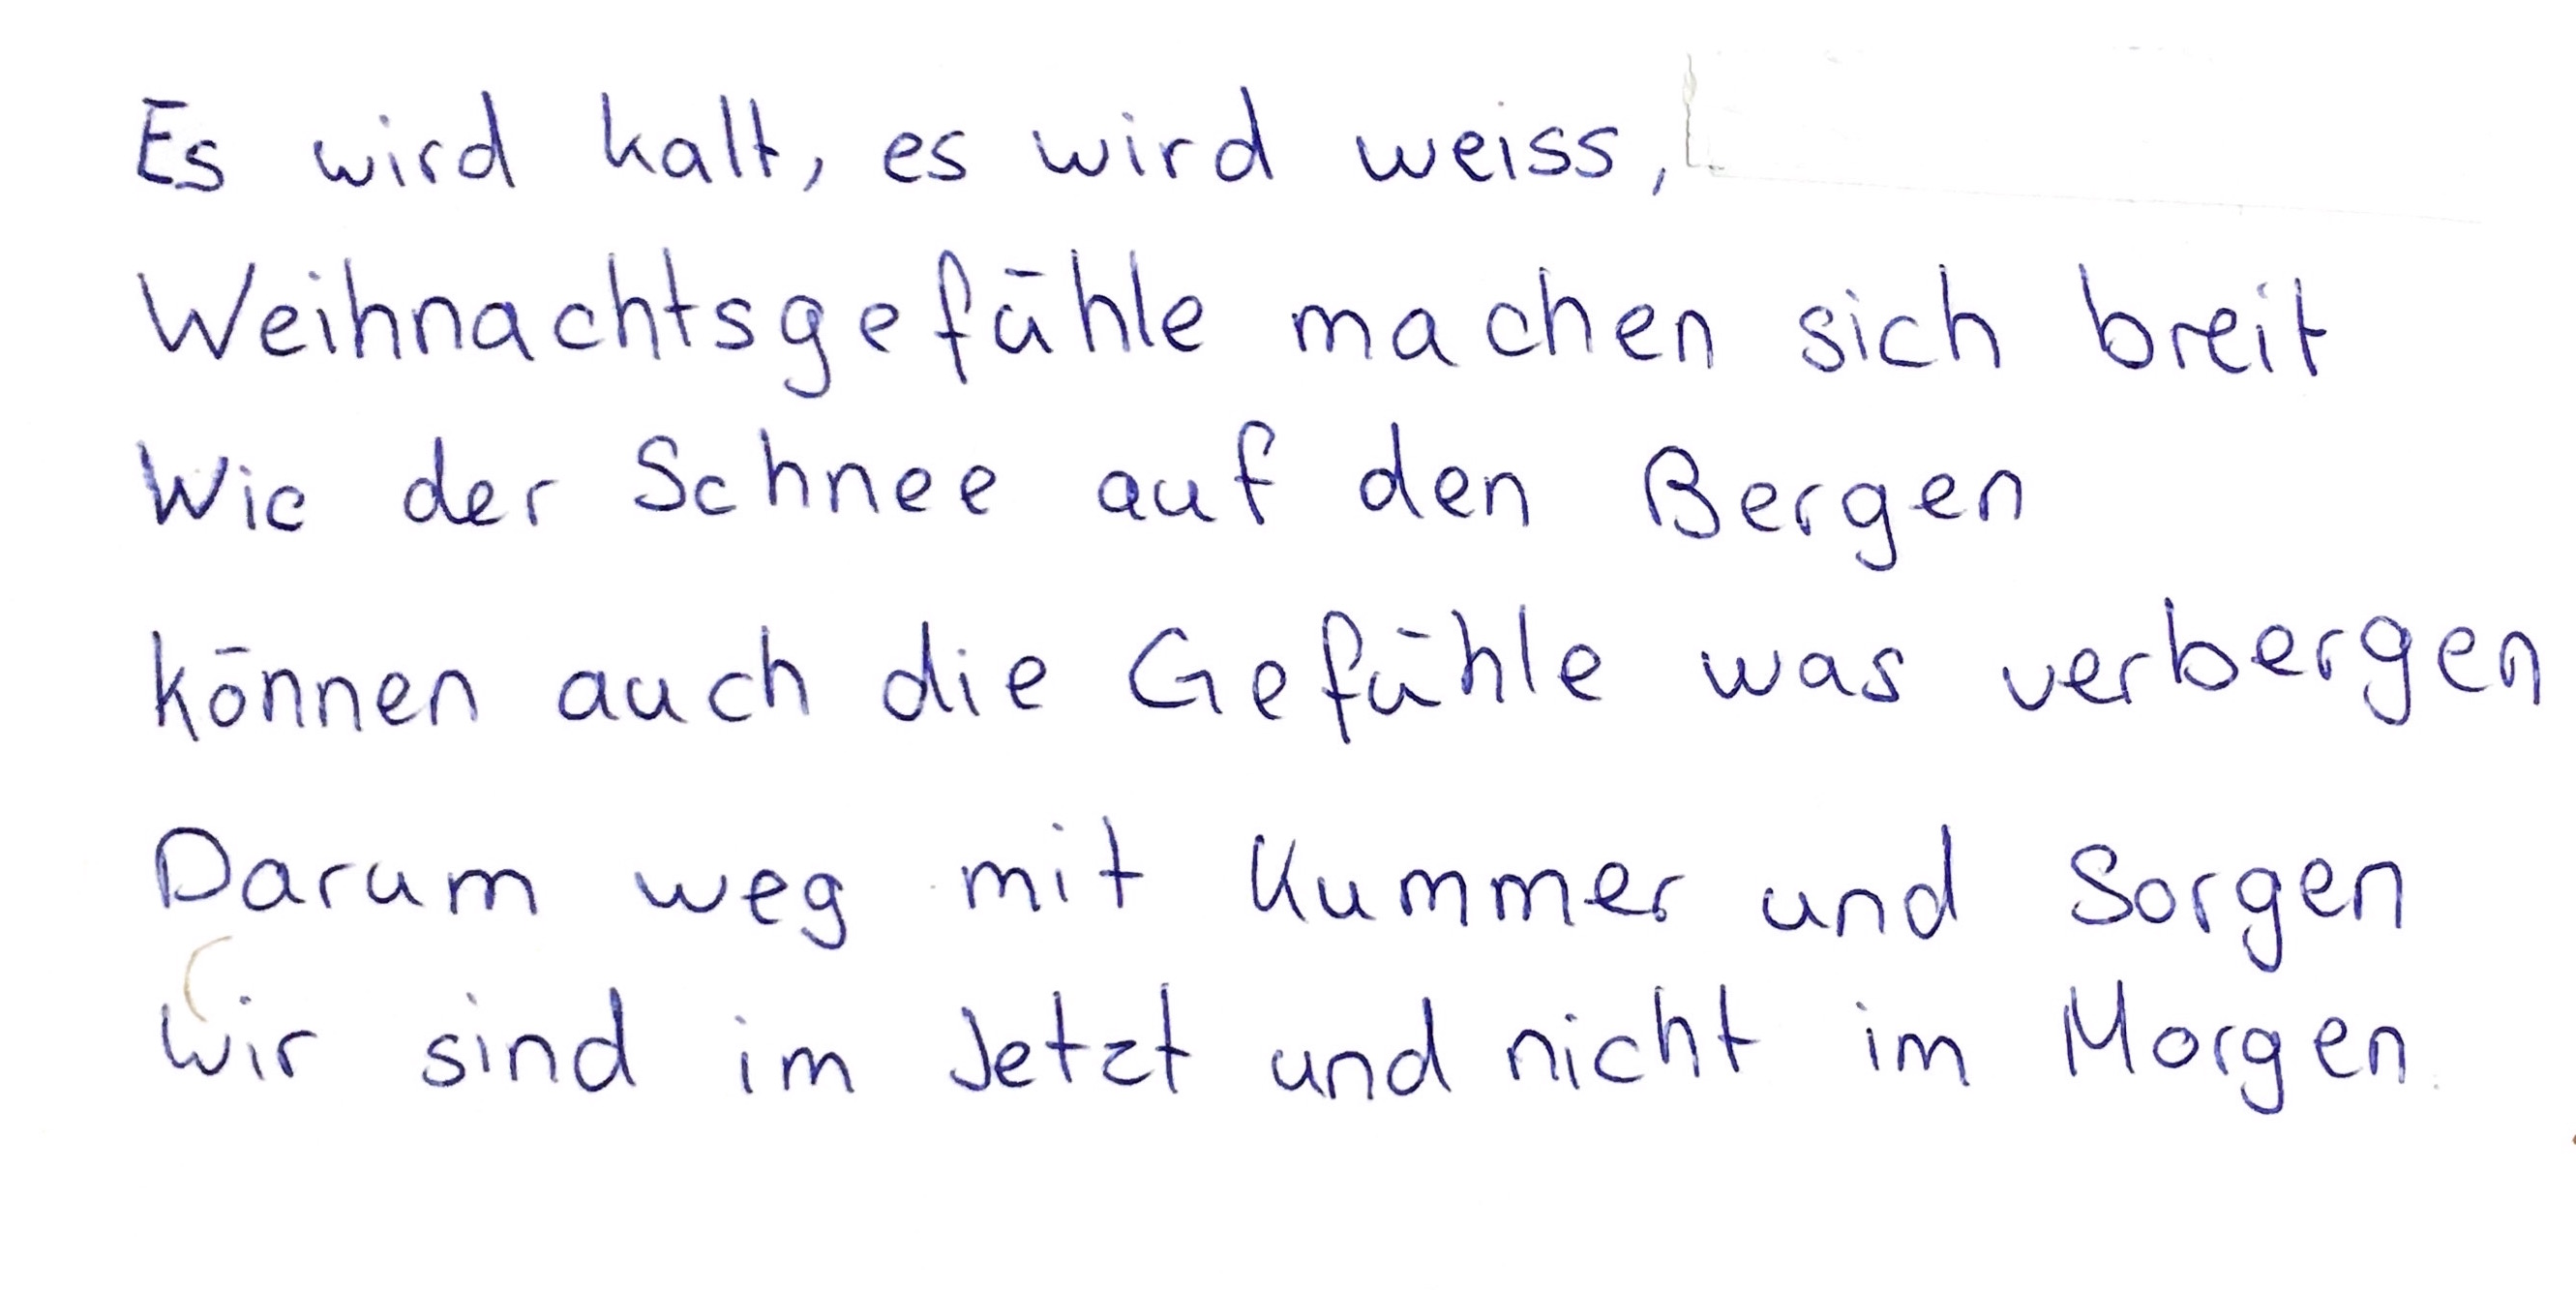 Es wird kalt, es wird weiss,
Weihnachtsgefühle machen sich breit
Wie der Schnee auf den Bergen
können auch die Gefühle was verbergen
Darum weg mit Kummer und Sorgen
Wir sind im Jetzt und nicht im Morgen.